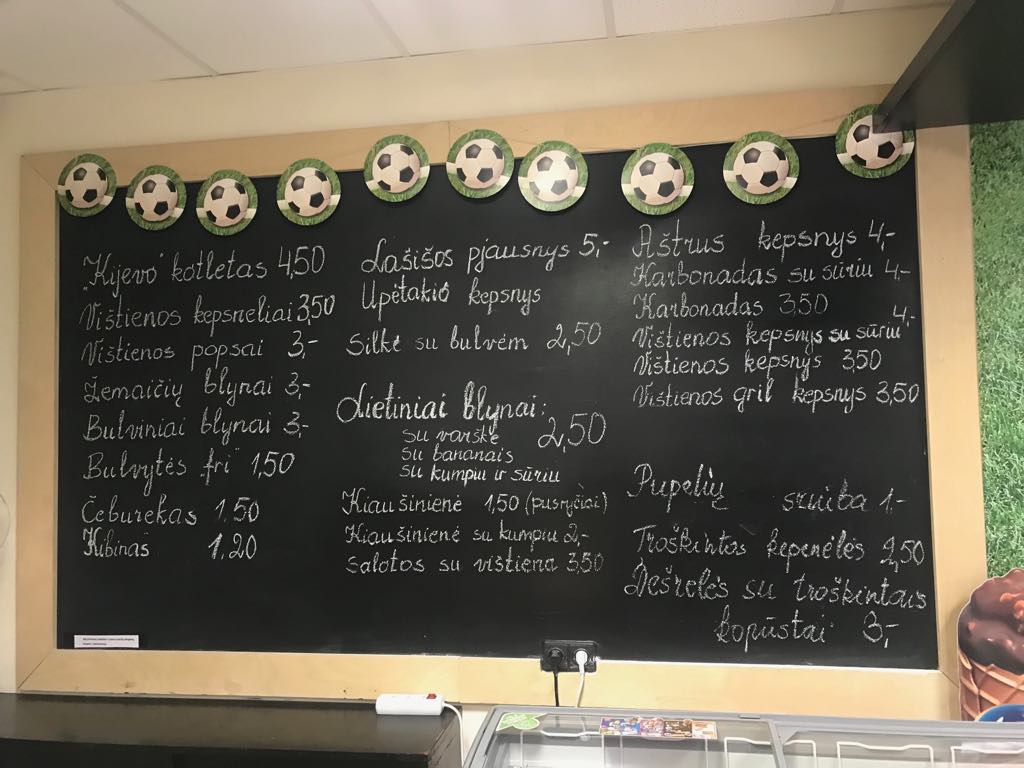 „Kijevo" kotletas 4,50
Vištienos kepsneliai 3,50
Vištienos popsai 3,-
Žemaičių blynai 3,-
Bulviniai blynai 3,-
Bulvytės fri" 1,50
Čeburekas 1.50
Kibinas 1.20
Lašišos pjausnys 5,-
Upėtakio kepsnys
Silkė su bulvėm 2,50
Lietiniai blynai:
su varške 2,50
su bananais
su kumpiu ir sūriu
Kiaušinienė 1,50 (pusryčiai)
Kiaušinienė su kumpiu 2,-
Salotos su vištiena 3,50
Aštrus kepsnys 4,-
Karbonadas su sūriu 4,-
Karbonadas 3,50
Vištienos kepsnys su sūriu 4,-
Vištienos kepsnys 3,50
Vištienos gril kepsnys 3,50
Pupelių sriuba 1.-
Troškintos kepenėlės 2,50
Dešrelės su troškintais
kopūstai 3,-